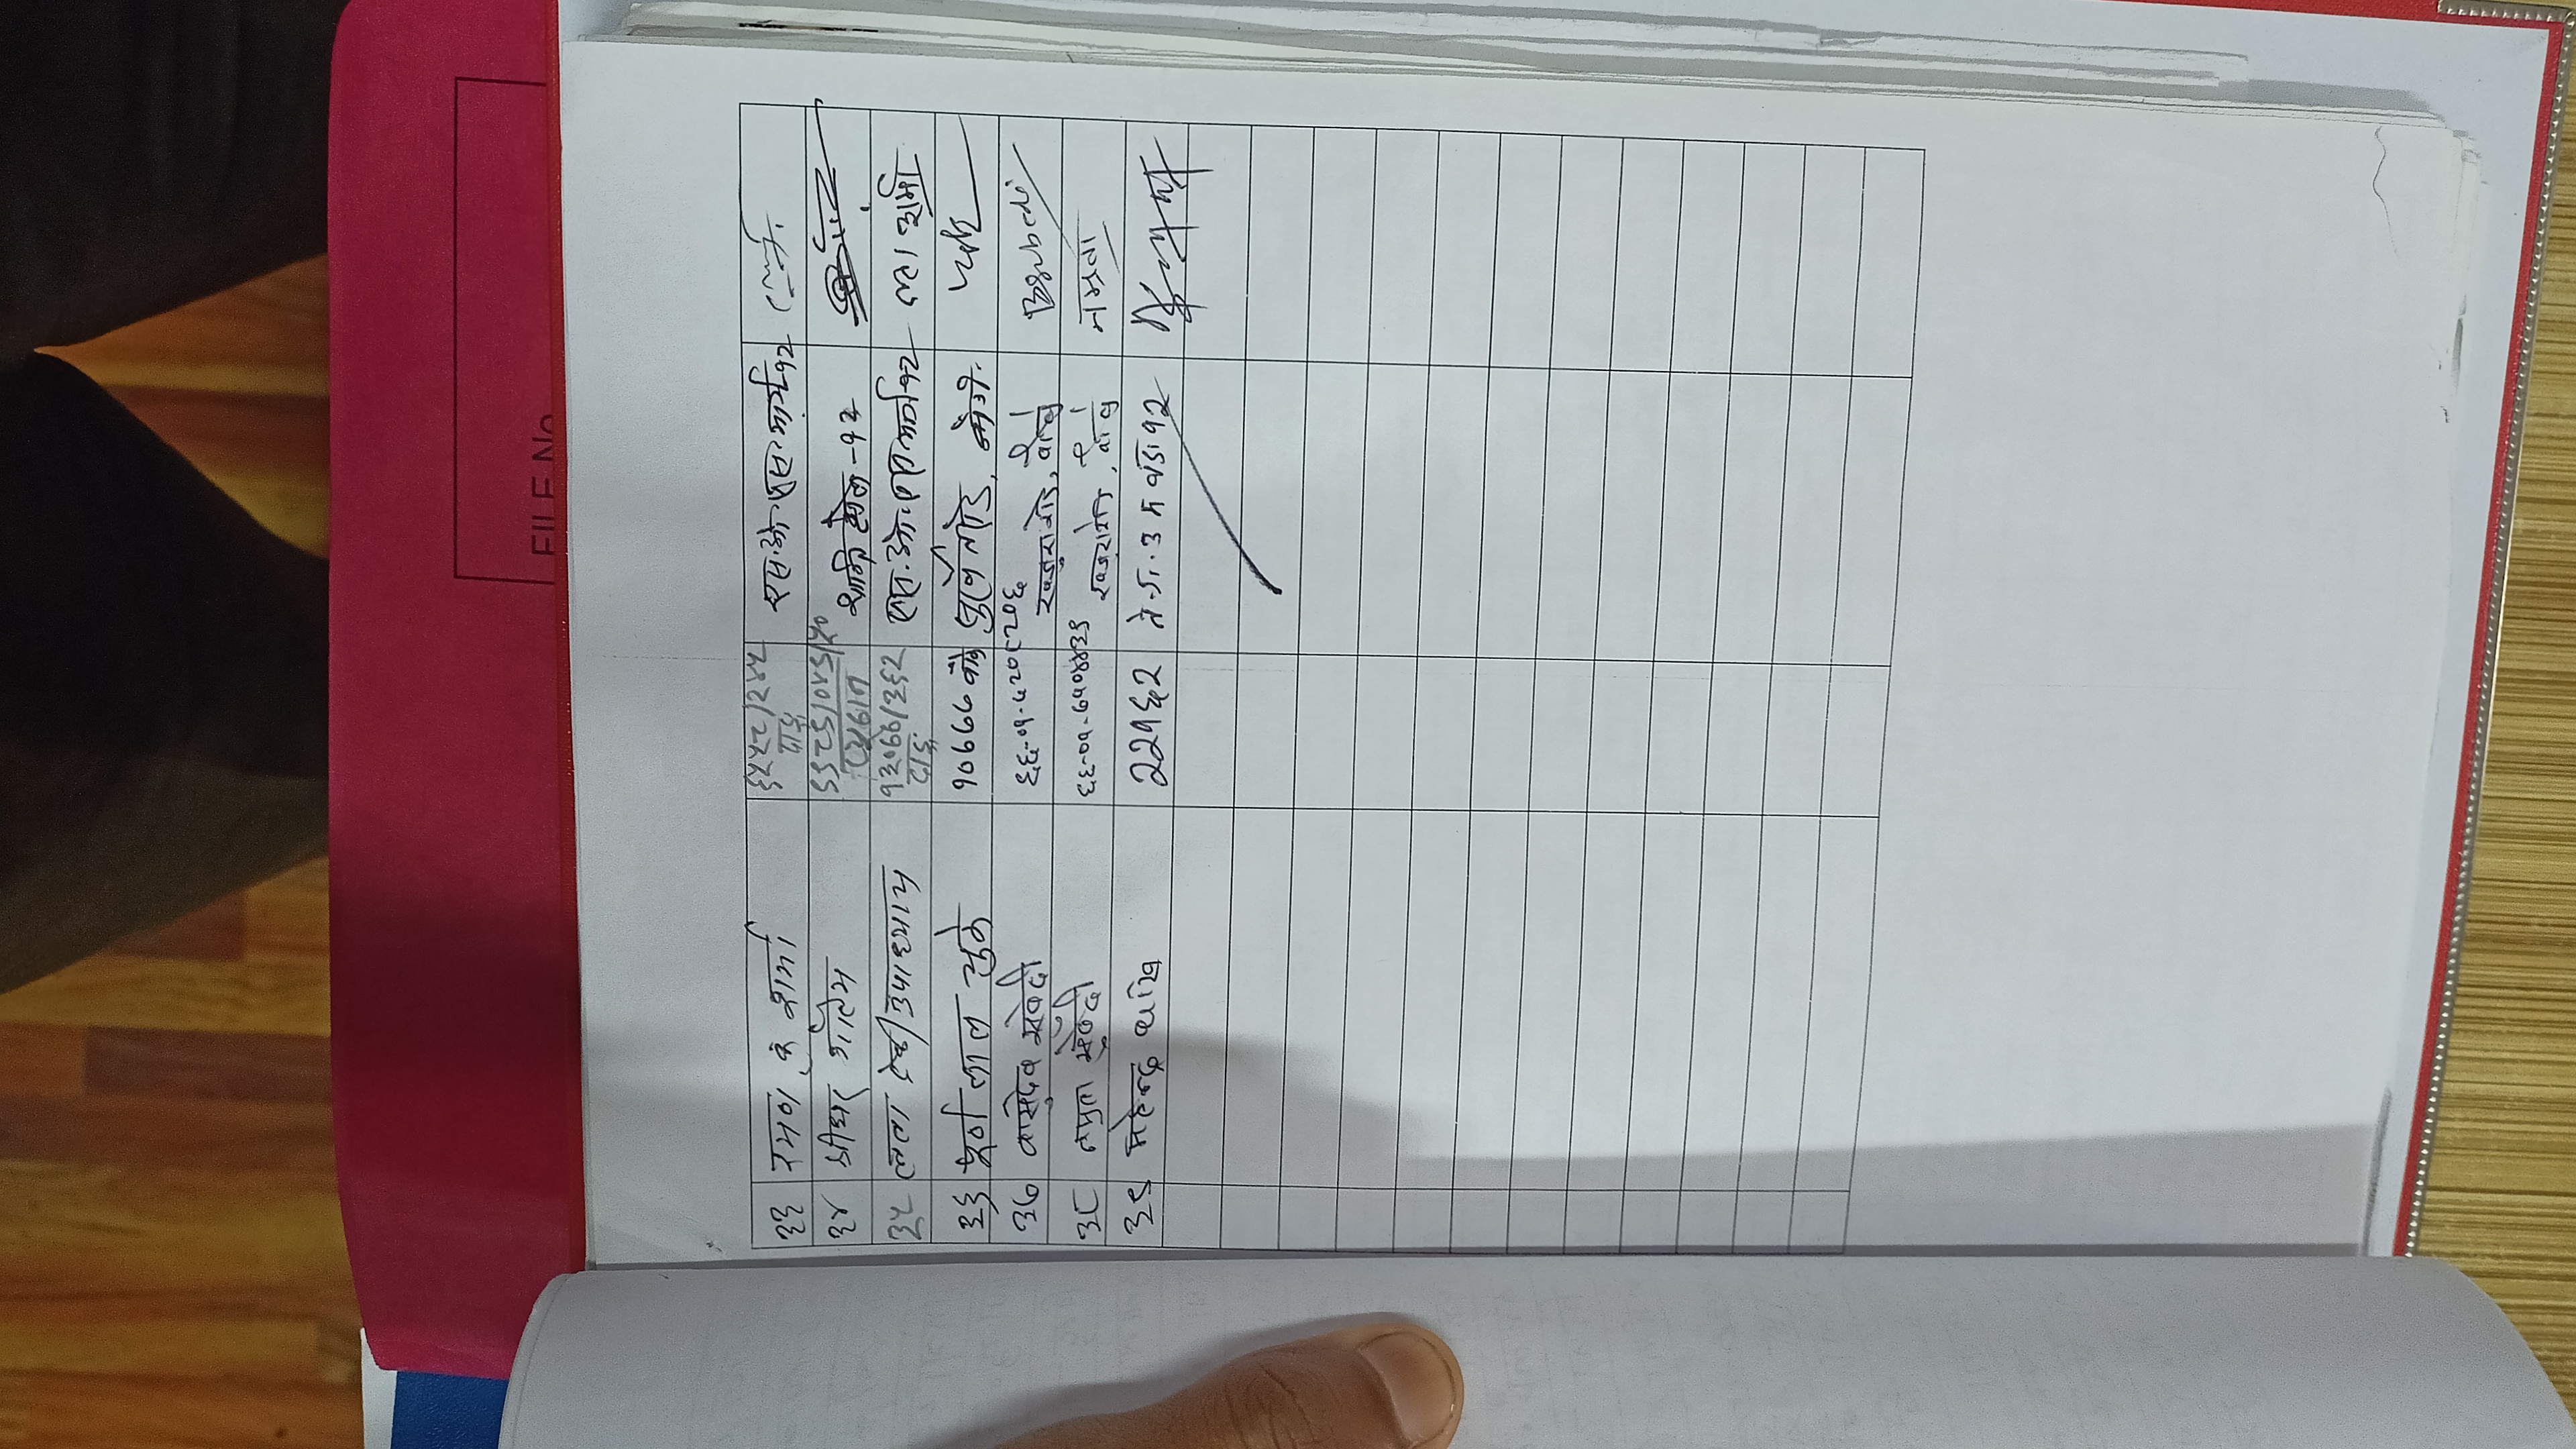 FILE No
३३ रमण कु शर्मा ६५५८/२४५ दाङ एस.ओ एस. मार्ग १२
३४ श्रीधर गौतम ६३८६/०४६/५० प्यूठान शान्ति टोल - १२
३५ लता देवी उपाध्याय १३०७७/३६२ दाङ एस.ओ.एस मार्ग १२ लता शर्मा
३६ पूर्ण लाल चुके १०७७७ बाँके
३७ वासुदेव सुवेदी ६६-०१-७२०८२०६ खजुरा रोड, बाँके BSubedi
३८ नम्रता सुवेदी ६६-०१-७५०४४३९ खजुरा रोड, बाँके नम्रता
३९ महेन्द्र २२१६२ ने.गं. उ म वडा १२